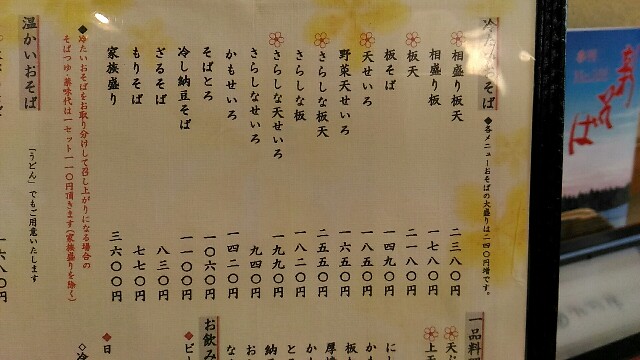 冷たいおそば
◆各メニューおそばの大盛りは二四〇円増です。
相盛り板天 二三八〇円
相盛り板 一七八〇円
板天 二一八〇円
板そば 一四九〇円
天せいろ 一八五〇円
野菜天せいろ 一六五〇円
さらしな板天 二五五〇円
さらしな板 一八二〇円
さらしな天せいろ 一九九〇円
さらしなせいろ 九四〇円
かもせいろ 一四二〇円
そばとろ 一〇六〇円
冷し納豆そば 一一〇〇円
ざるそば 八三〇円
もりそば 七七〇円
家族盛り 三六〇〇円
◆冷たいおそばをお取り分けして召し上がりになる場合の
そばつゆ・薬味代は一セット一一〇円頂きます(家族盛りを除く)
温かいおそば
「うどん」でもご用意いたします
一六八〇円
一品料理
お飲み
新そば